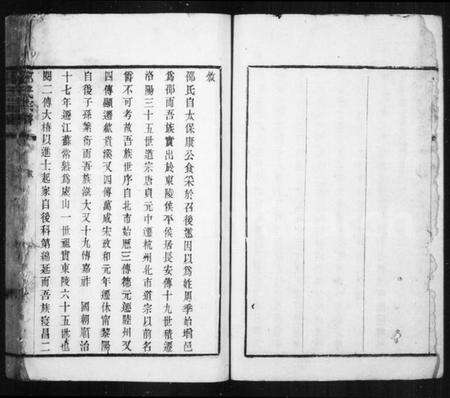 敘
邵氏自太保康公食采於召後裔因以爲姓厯周季始增邑
爲邵而吾族實出於東陵侯平侯居長安傳十九世積遷
洛陽三十五世道宗唐貞元中遷杭州北市道宗以前名
諱不可考故吾族世序自北市始厯三傳德元遷睦州又
四傳顯遷歙黄溪又四傳萬成宋政和元年遷休甯黎陽
自後子孫蕃衍而吾族滋大又十九傳嘉祚 國朝順治
十七年遷江蘇常熟爲虞山一世祖實東陵六十五世也
閱二傳大椿以進士起家自後科第綿延而吾族寖昌二